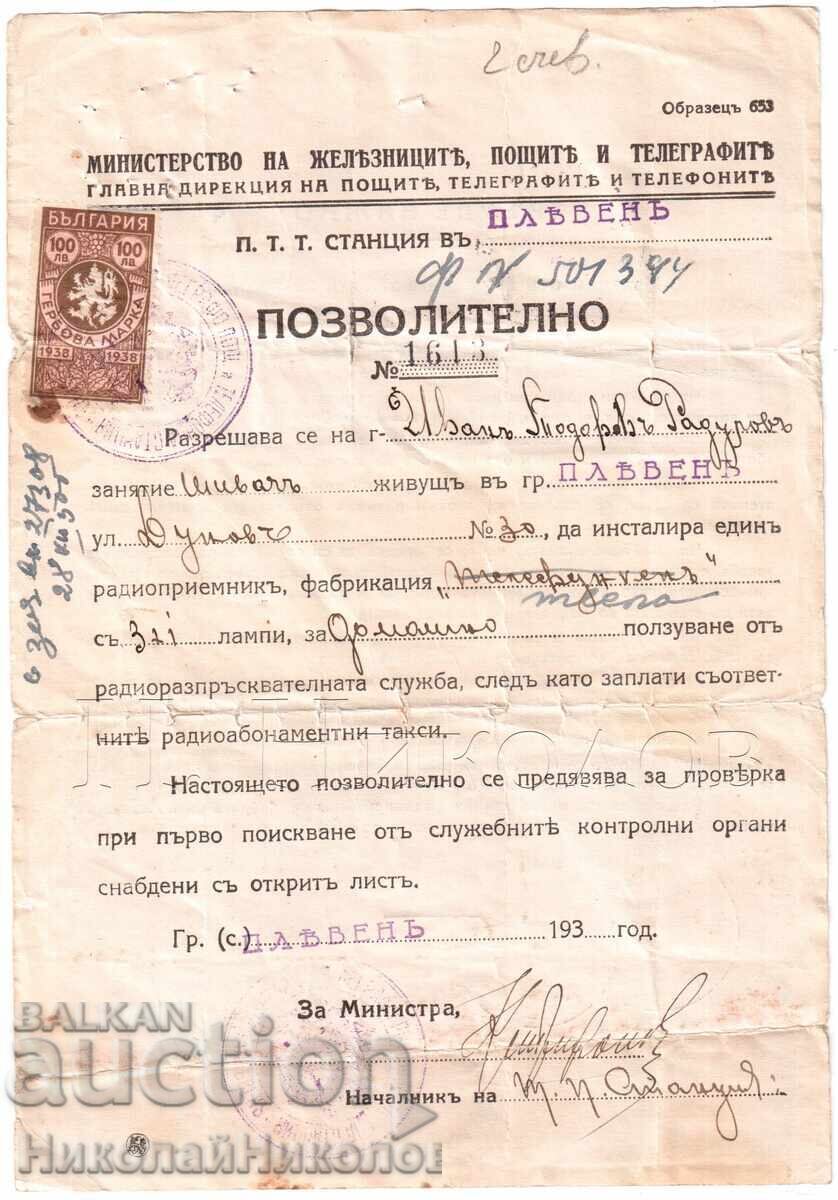 Образецъ 653
МИНИСТЕРСТВО НА ЖЕЛѢЗНИЦИТѢ, ПОЩИТѢ И ТЕЛЕГРАФИТѢ
ГЛАВНА ДИРЕКЦИЯ НА ПОЩИТѢ, ТЕЛЕГРАФИТѢ И ТЕЛЕФОНИТѢ
П. Т. Т. СТАНЦИЯ ВЪ ПЛѢВЕНЪ
БЪЛГАРИЯ
100 ЛВ. 100 ЛВ.
ГЕРБОВА МАРКА
1938 1938
501384
ПОЗВОЛИТЕЛНО
№ 1613
Разрешава се на г- Иванъ Тодоровъ
занятие Шивачъ живущъ въ гр. ПЛѢВЕНЪ
ул. № 30, да инсталира единъ
радиоприемник, фабрикация „Телефункенъ"
съ 3+1 лампи, за Домашно ползуване отъ
радиоразпръсквателната служба, следъ като заплати съответ-
нитѣ радиоабонаментни такси.
Настоящето позволително се предявява за провѣрка
при първо поискване отъ служебнитѣ контролни органи
снабдени съ открить листъ.
Гр. (с.) ПЛѢВЕНЪ 193 год.
За Министра,
Началникъ на Т. П. Станция:
Н. Николов
BALKAN
auction
НиколайНиколов